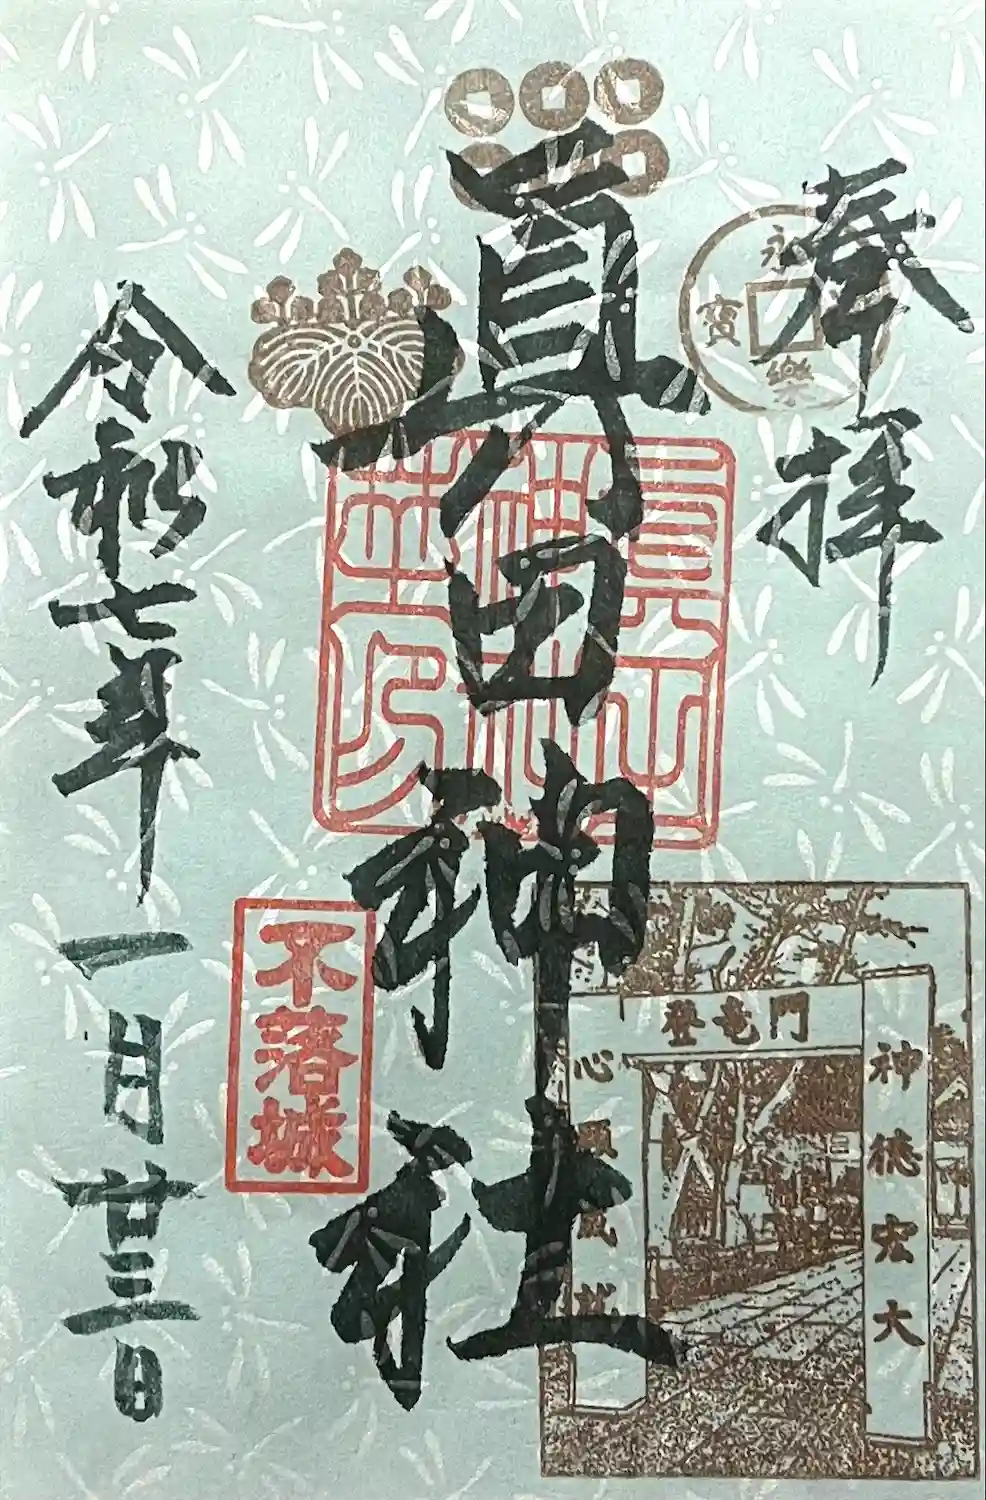 奉拝
永樂寳
眞田神社
眞田神社華印
不落城
登竜門
神徳宏大
心願成就
令和七年
一月廿三日